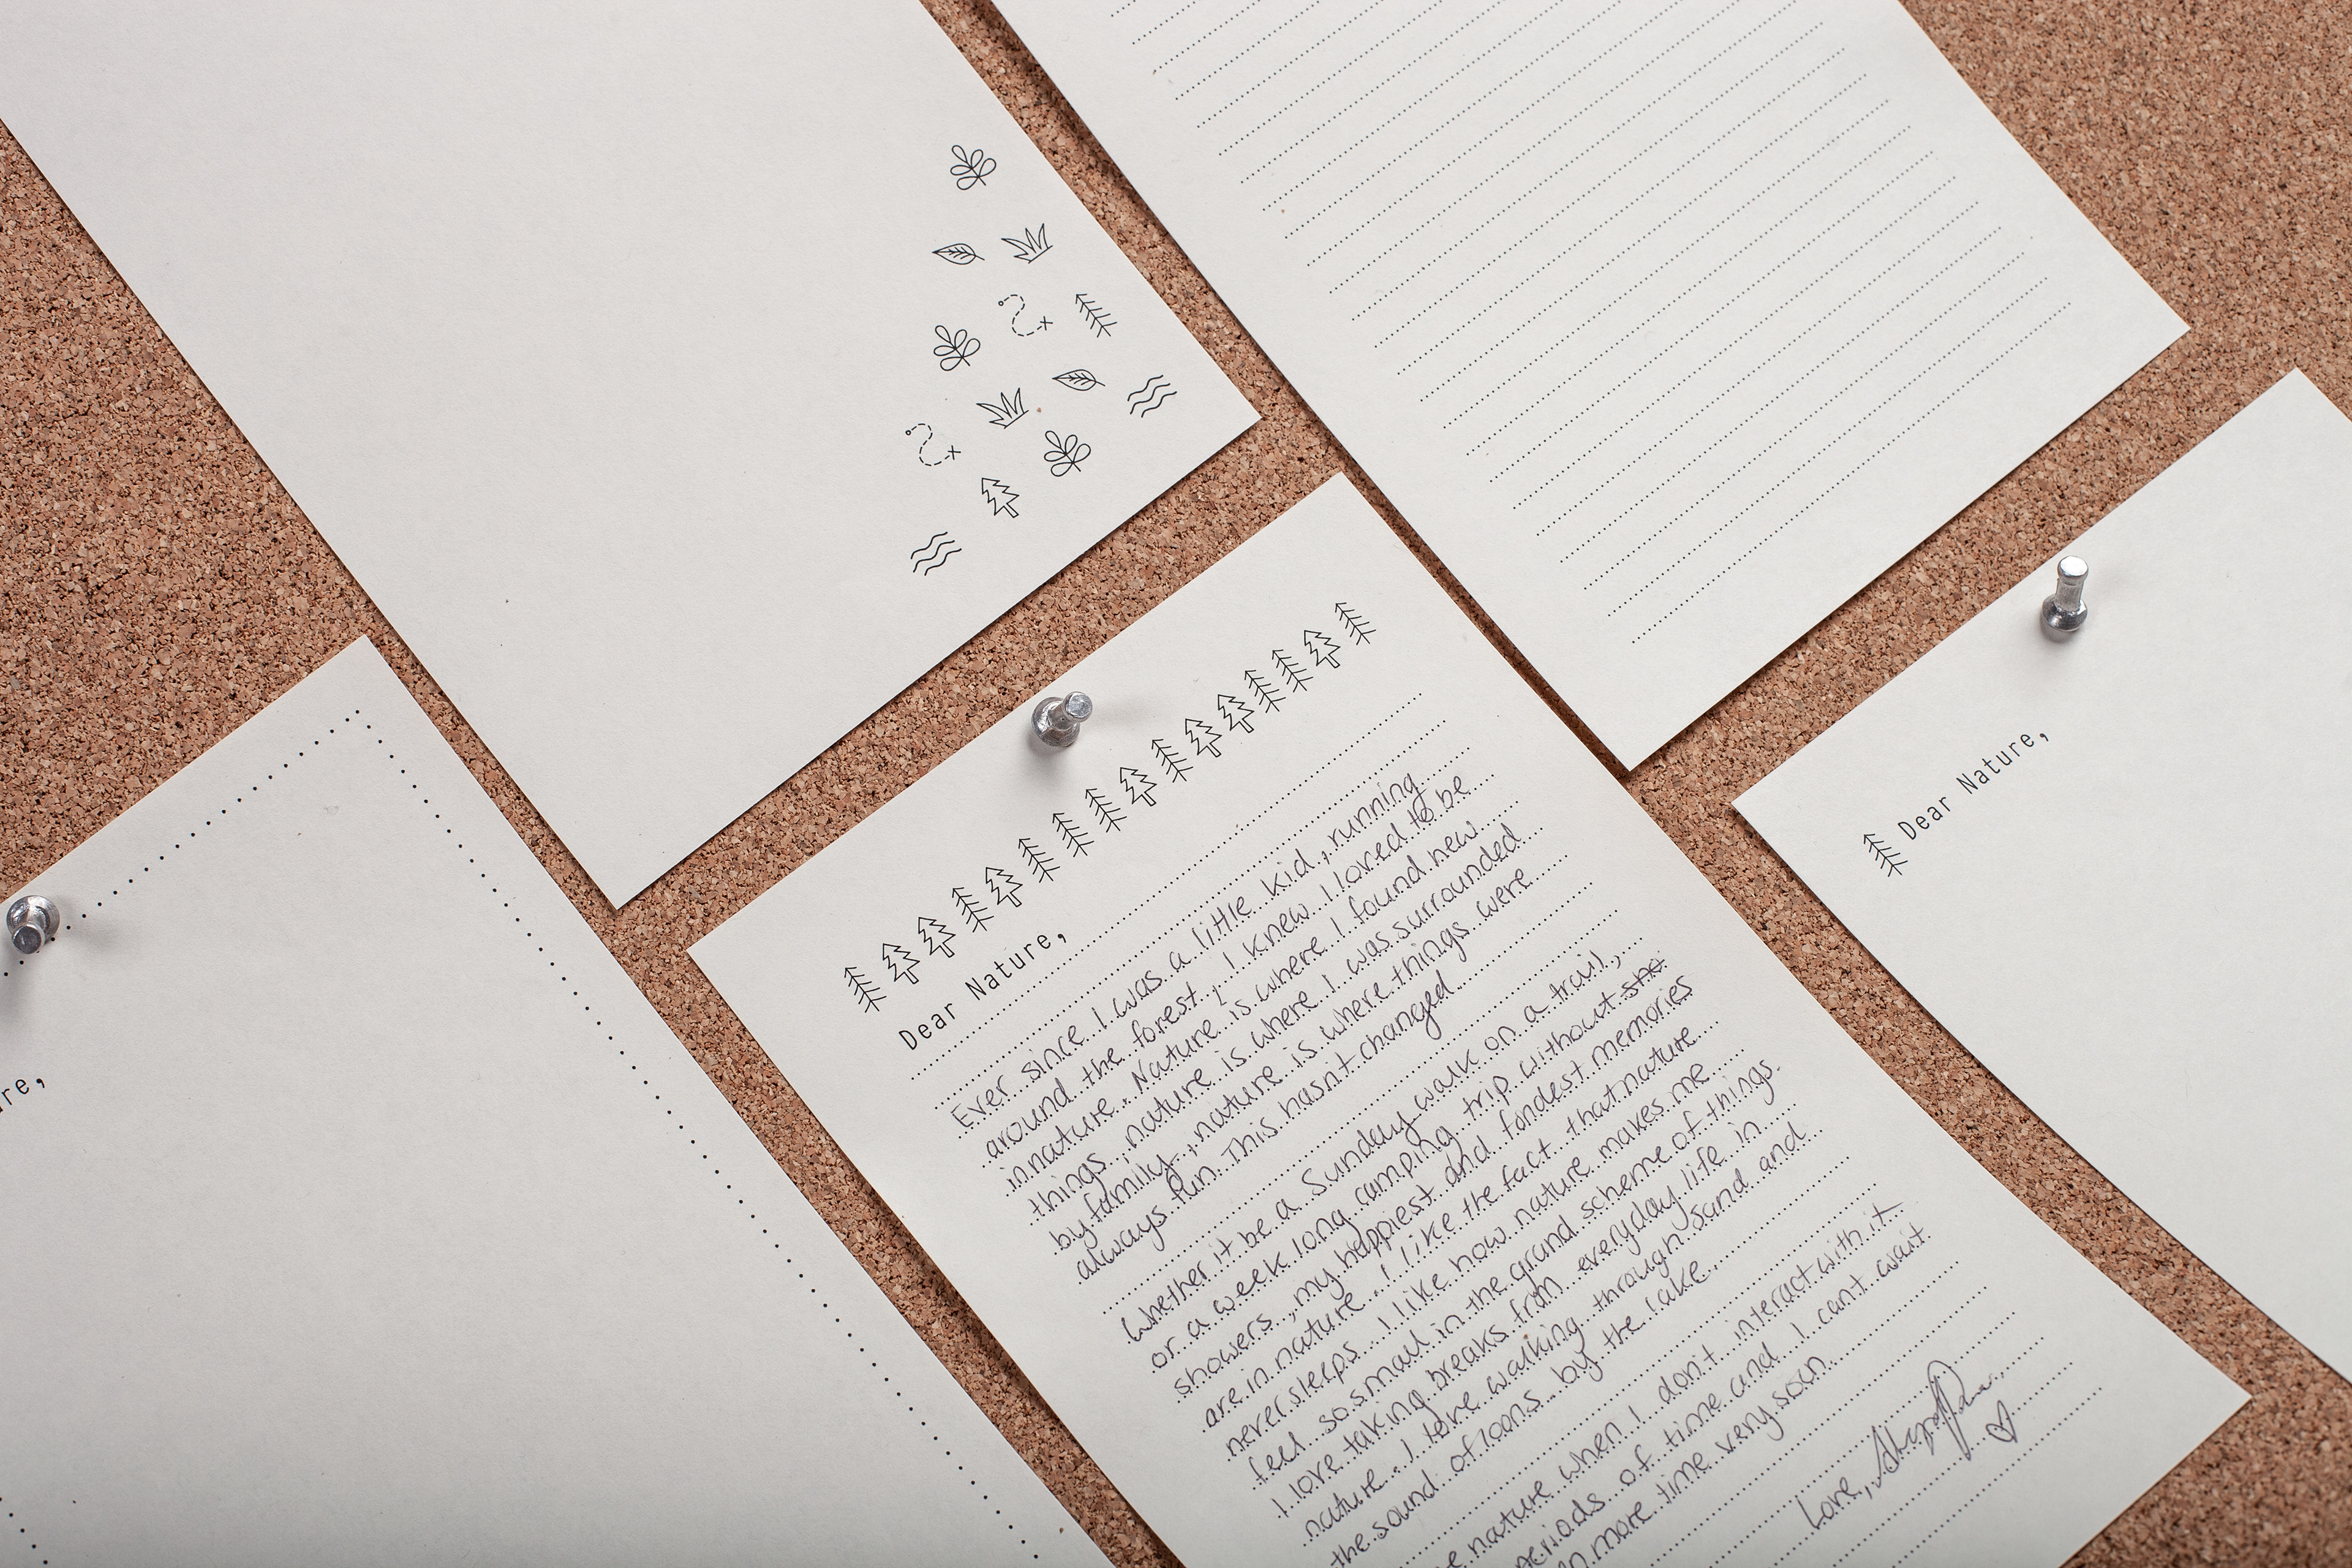 Dear Nature,
Ever since I was a little kid, running
around the forest, I knew I loved to be
in nature. Nature is where I found new
things, nature is where I was surrounded
by family, nature is where things were
always fun. This hasn't changed.
Whether it be a Sunday walk on a trail,
or a week long camping trip without the
showers, my happiest and fondest memories
are in nature. I like the fact that nature
never sleeps. I like how nature makes me
feel so small in the grand scheme of things.
I love taking breaks from everyday life in
nature. I love walking through sand and
the sound of loons by the lake.
nature when I don't interact with it
periods of time and I can't wait
more time very soon.
Love,
Dear Nature,
re,